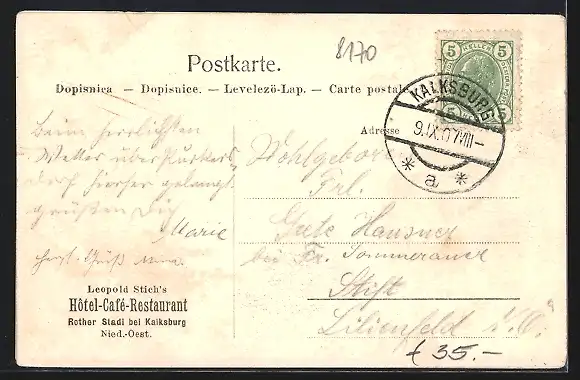 8170
Postkarte.
Dopisnica — Dopisnice. — Levelező-Lap. — Carte postale
5 HELLER 5
KALKSBURG
9.IX.07 VIII–
* a *
Adresse
Beim herrlichsten
Wetter über
doch hierher gelangt
grüßen Dich
Marie
Wohlgeboren
Frl.
Grete Hausner
bei Fr. Sommerauer
Stift
Lilienfeld N.Ö.
Leopold Stich's
Hôtel-Café-Restaurant
Rother Stadl bei Kalksburg
Nied.-Oest.
€ 35.-